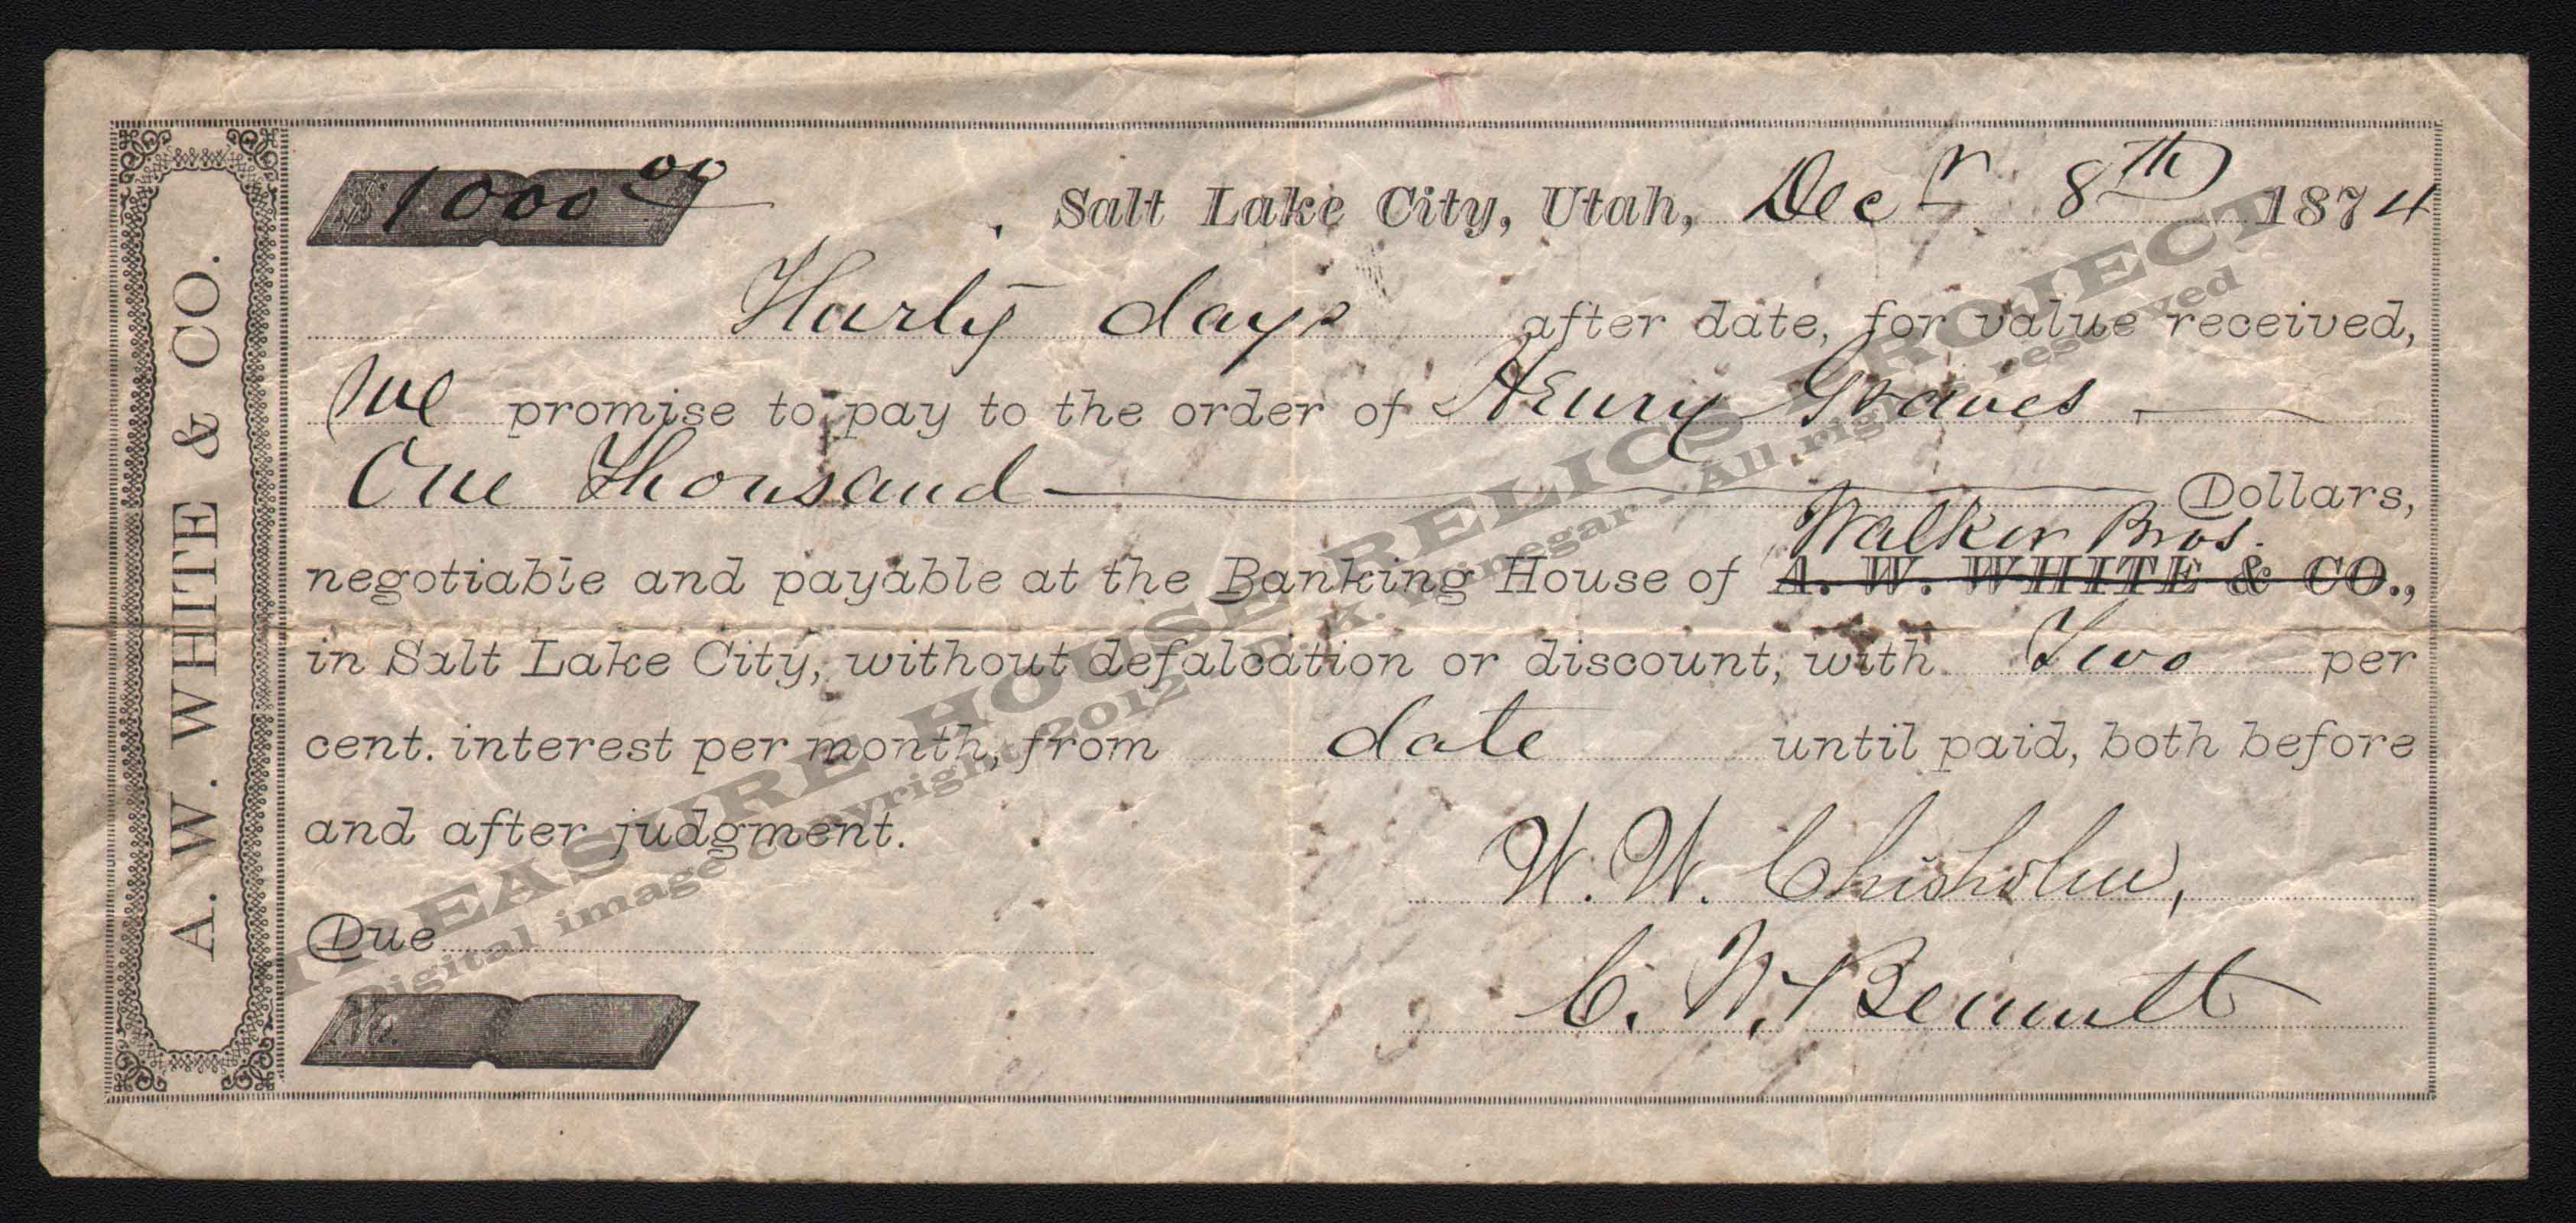 A. W. WHITE & CO.
$1000 00
Salt Lake City, Utah, Decr 8th 1874
Thirty days after date, for value received,
We promise to pay to the order of Henry Graves
One Thousand Dollars,
Walker Bros.
negotiable and payable at the Banking House of A. W. WHITE & CO.,
in Salt Lake City, without defalcation or discount, with Two per
cent. interest per month, from date until paid, both before
and after judgment.
W. W. Chisholm,
Due
C. W. Bennett
No.
TREASURE HOUSE RELICS PROJECT
Digital image copyright 2012 D. A. Hinegar - All rights reserved